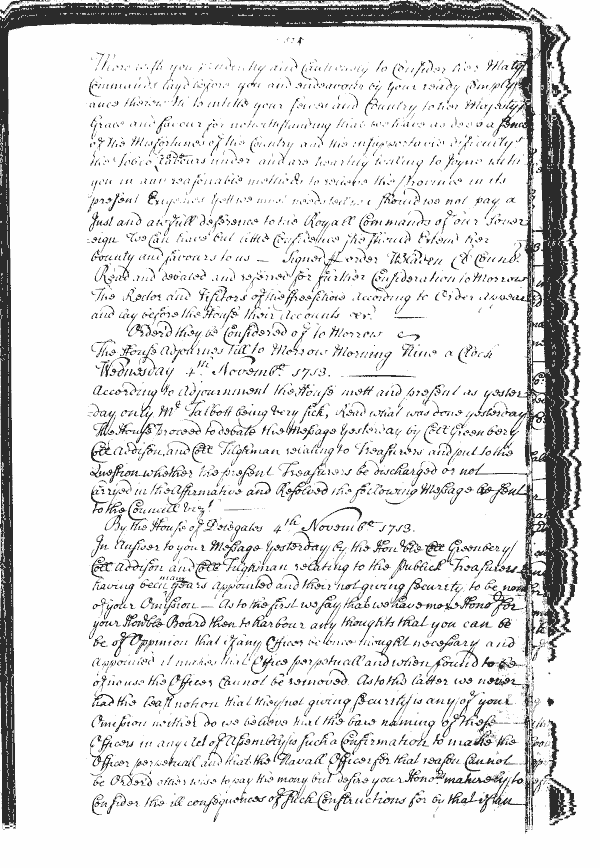 wish you prudently and Cautiously to Consider her Maj.tys
Commands layd before you and endeavour by your ready Comply
ance therewith to intitle your selves and Country to her Majestys
Grace and favour for notwithstanding that we have as deep a Sence
of the Misfortunes of the Country and the difficultys
the labours under and are heartily willing to Joyne with
you in any reasonable methods to relieve the Province in its
present Exigences yett we must needs tell you should we not pay a
Just and awfull deference to the Royall Commands of our Sover
eign We Can have but little Confidence She should Extend her
bounty and favours to us — Signed order W Bladen Cl Counl.
Read and debated and referred for further Consideration to Morrow
The Rector and Visitors of the freeschools according to Order appear
and lay before the House their Accounts
Orderd they be Considered of to Morrow
The House Adjournes till to Morrow Morning Nine a Clock
Wednesday 4th Novembr 1713.
According to Adjournment the House mett and present as yester
day only Mr Talbott being very sick, Read what was done yesterday
The House proceed to debate the Message yesterday by Coll Greenberry
Coll Addison and Coll Tilghman relating to Treasurers and put to the
Question whether the present Treasurers be discharged or not
Carryed in the Affirmative and Resolved the following Message be sent
to the Councill vizt
By the House of Delegates 4th Novembr 1713.
In Answer to your Message yesterday by the Honble Coll Greenbery
Coll Addison and Coll Tilghman relating to the Publick Treasurers
having been many years Appointed and their not giving Security to be none
of your Omission — As to the first we say that we have more Honor for
your Honble Board then to harbour any thoughts that you can be
be of Oppinion that if any Officer be once thought necessary and
Appointed it makes that Office perpetuall and when found to be
of no use the Officer Cannot be removed. As to the latter we never
had the least notion that they not giving Security is any of your
Omission neither do we believe that the bare naming of these
Officers in any Act of Assembly is such a Confirmation to make the
Officer perpetual and that the Navall Officer for that reason Cannot
be Orderd otherwise to pay the mony but desire your Honrs maturely to
Consider the ill consequences of such Constructions for by that if an